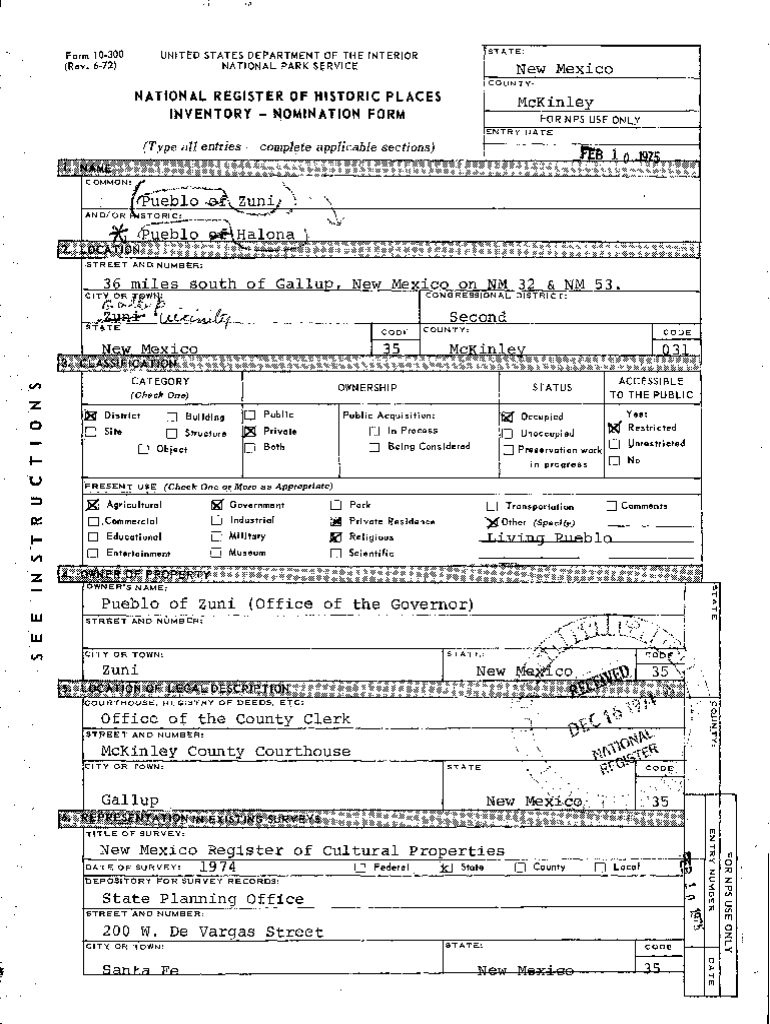 Form 10-300 UNITED STATES DEPARTMENT OF THE INTERIOR
(Rev. 6-72) NATIONAL PARK SERVICE
NATIONAL REGISTER OF HISTORIC PLACES
INVENTORY - NOMINATION FORM
(Type all entries - complete applicable sections)
STATE:
New Mexico
COUNTY:
McKinley
FOR NPS USE ONLY
ENTRY DATE
FEB 10 1975
1. NAME
COMMON:
Pueblo of Zuni
AND/OR HISTORIC:
* Pueblo of Halona
2. LOCATION
STREET AND NUMBER:
36 miles south of Gallup, New Mexico on NM 32 & NM 53.
CITY OR TOWN: CONGRESSIONAL DISTRICT:
Gallup
Zuni vicinity Second
STATE CODE COUNTY: CODE
New Mexico 35 McKinley 031
3. CLASSIFICATION
CATEGORY
(Check One)
OWNERSHIP STATUS ACCESSIBLE
TO THE PUBLIC
District Building Public Public Acquisition: Occupied Yes:
Site Structure Private In Process Unoccupied Restricted
Object Both Being Considered Preservation work
in progress
Unrestricted
No
PRESENT USE (Check One or More as Appropriate)
Agricultural Government Park Transportation Comments
Commercial Industrial Private Residence Other (Specify)
Educational Military Religious Living Pueblo
Entertainment Museum Scientific
4. OWNER OF PROPERTY
OWNER'S NAME:
Pueblo of Zuni (Office of the Governor)
STREET AND NUMBER:
CITY OR TOWN: STATE: CODE
Zuni New Mexico 35
5. LOCATION OF LEGAL DESCRIPTION
COURTHOUSE, REGISTRY OF DEEDS, ETC:
Office of the County Clerk
STREET AND NUMBER:
McKinley County Courthouse
CITY OR TOWN: STATE CODE
Gallup New Mexico 35
6. REPRESENTATION IN EXISTING SURVEYS
TITLE OF SURVEY:
New Mexico Register of Cultural Properties
DATE OF SURVEY: 1974 Federal State County Local
DEPOSITORY FOR SURVEY RECORDS:
State Planning Office
STREET AND NUMBER:
200 W. De Vargas Street
CITY OR TOWN: STATE: CODE
Santa Fe New Mexico 35
SEE INSTRUCTIONS
STATE
COUNTY:
ENTRY NUMBER
DATE
FOR NPS USE ONLY
FEB 10 1975
RECEIVED
DEC 16 1974
NATIONAL
REGISTER